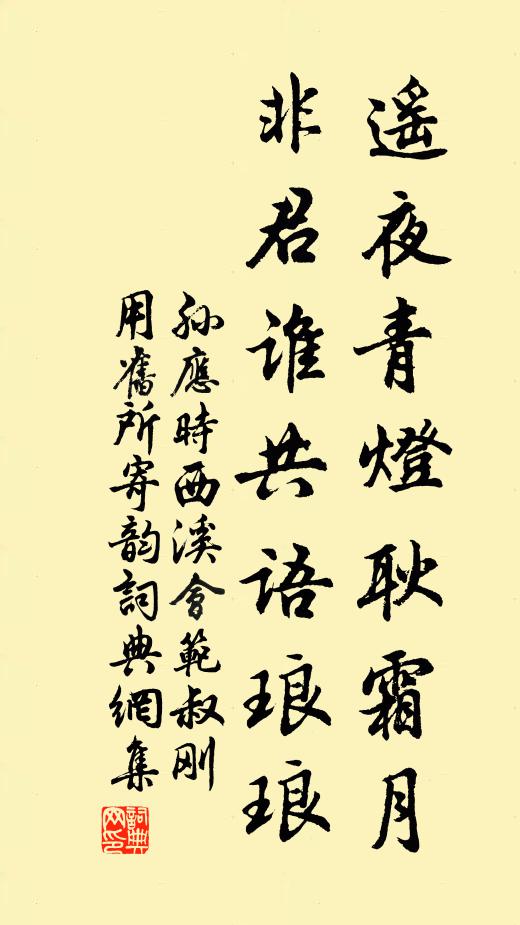 遥夜青燈耿霜月
非君誰共語琅琅
孙應時西溪會範叔刚
用舊所寄韵詞典網集
詞典
网印